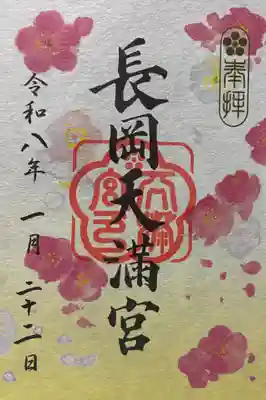 奉拝
長岡天満宮
令和八年 一月 二十二日